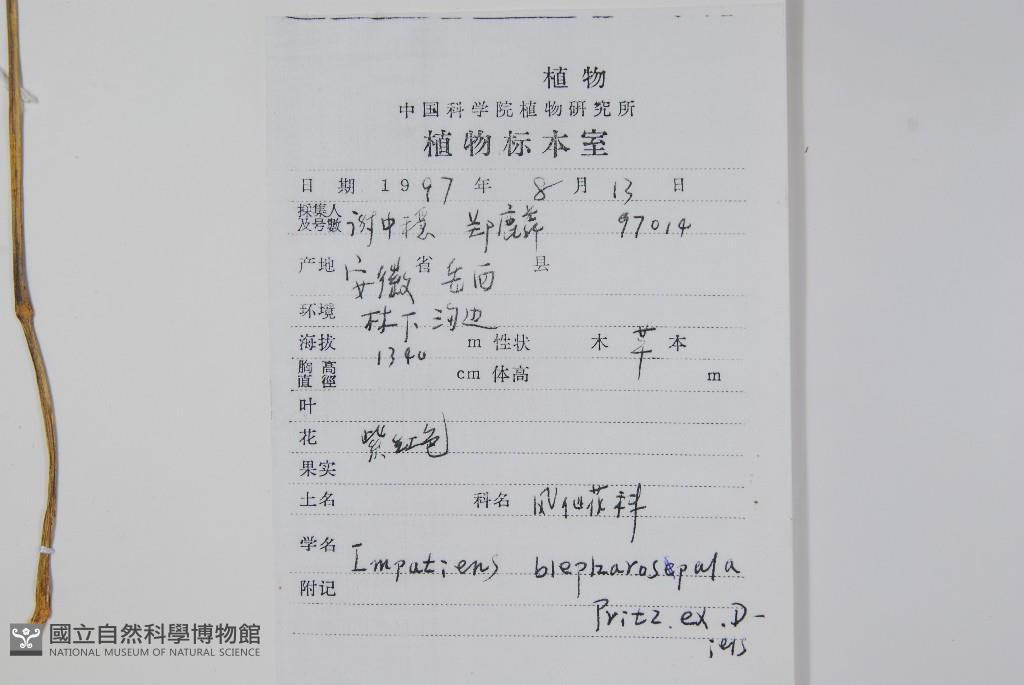 植物
中国科学院植物研究所
植物标本室
日 期 1997 年 8 月 13 日
採集人及号數 谢中稳 郑 97014
产地 安徽 省 岳西 县
环境 林下沟边
海拔 1340 m 性状 木 草 本
胸高直徑 cm 体高 m
叶
花 紫红色
果实
土名 科名 凤仙花科
学名 Impatiens blepharosepala
附记 Pritz.ex.D-
iels
國立自然科學博物館
NATIONAL MUSEUM OF NATURAL SCIENCE